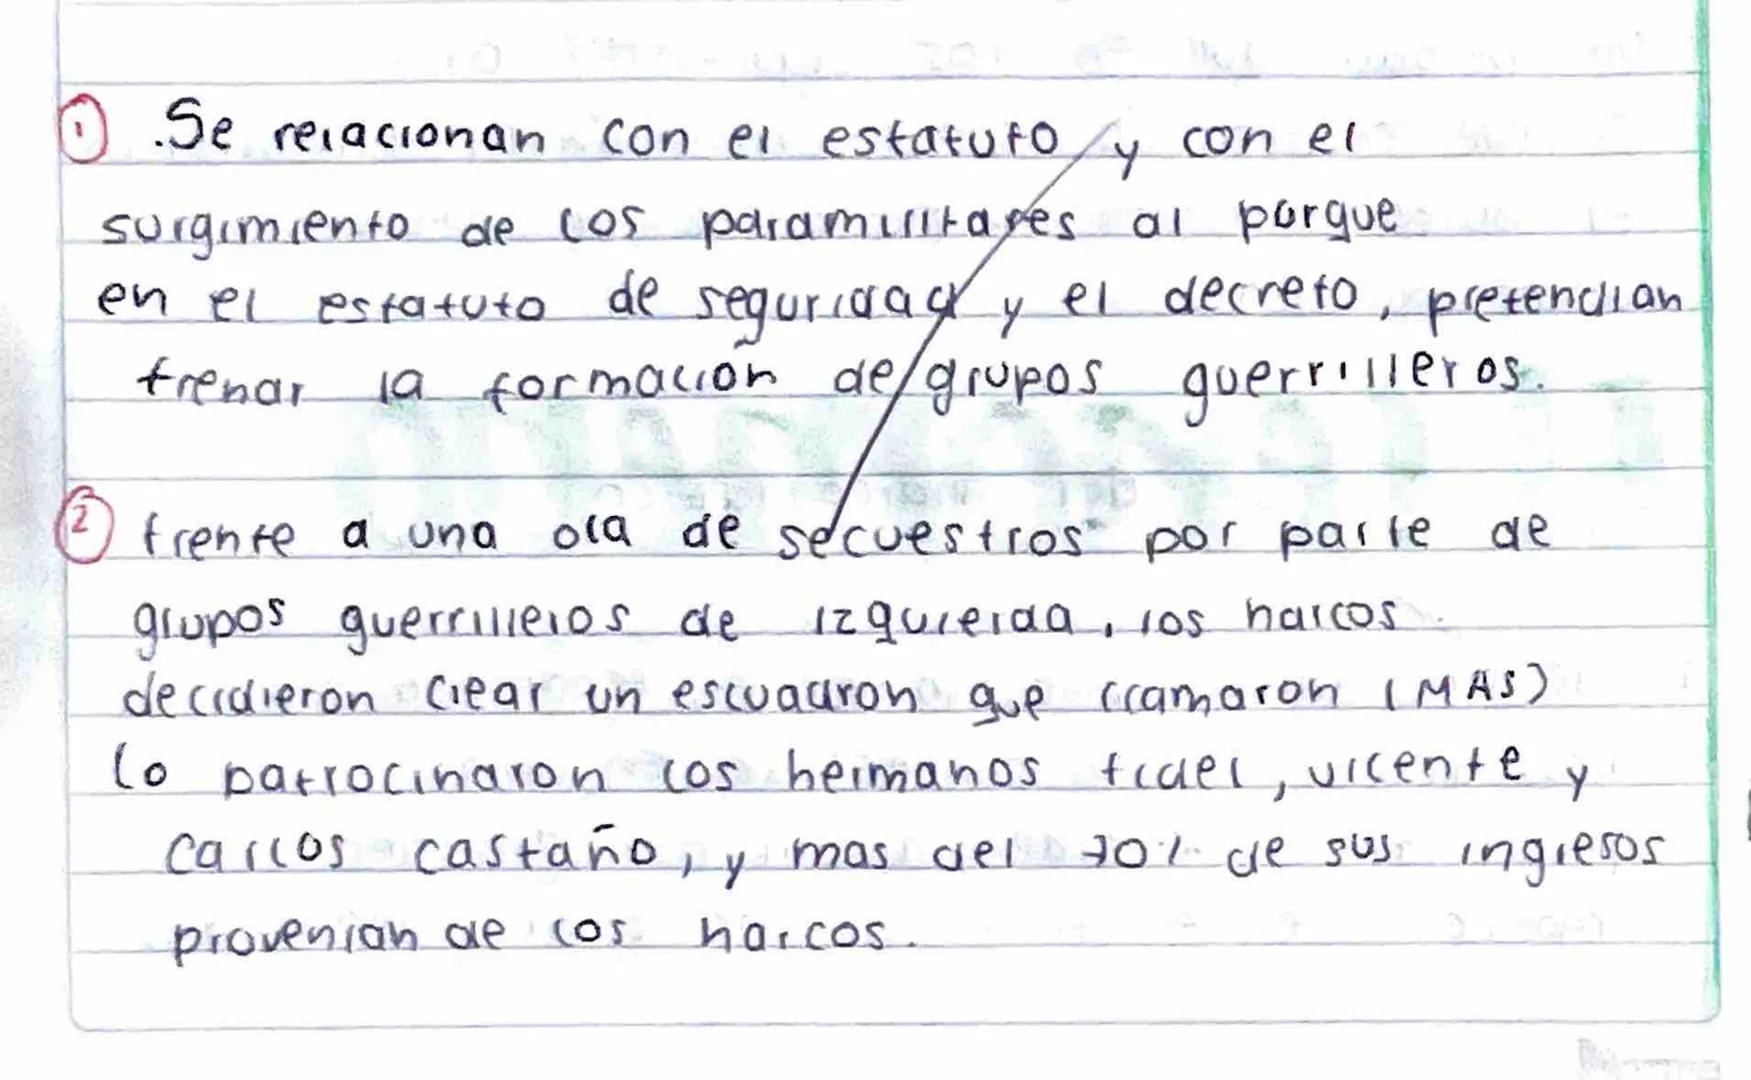 1 .Se relacionan con el estatuto y con el
surgimiento de los paramilitares al porque
en el estatuto de seguridad y el decreto, pretendian
frenar la formación de grupos guerrilleros.
2 frente a una ola de secuestros por parte de
grupos guerrilleros de izquierda, los narcos
decidieron crear un escuadron que llamaron (MAS)
lo patrocinaron los hermanos fidel, vicente y
carlos castaño, y mas del 70% de sus ingresos
provenian de los narcos.